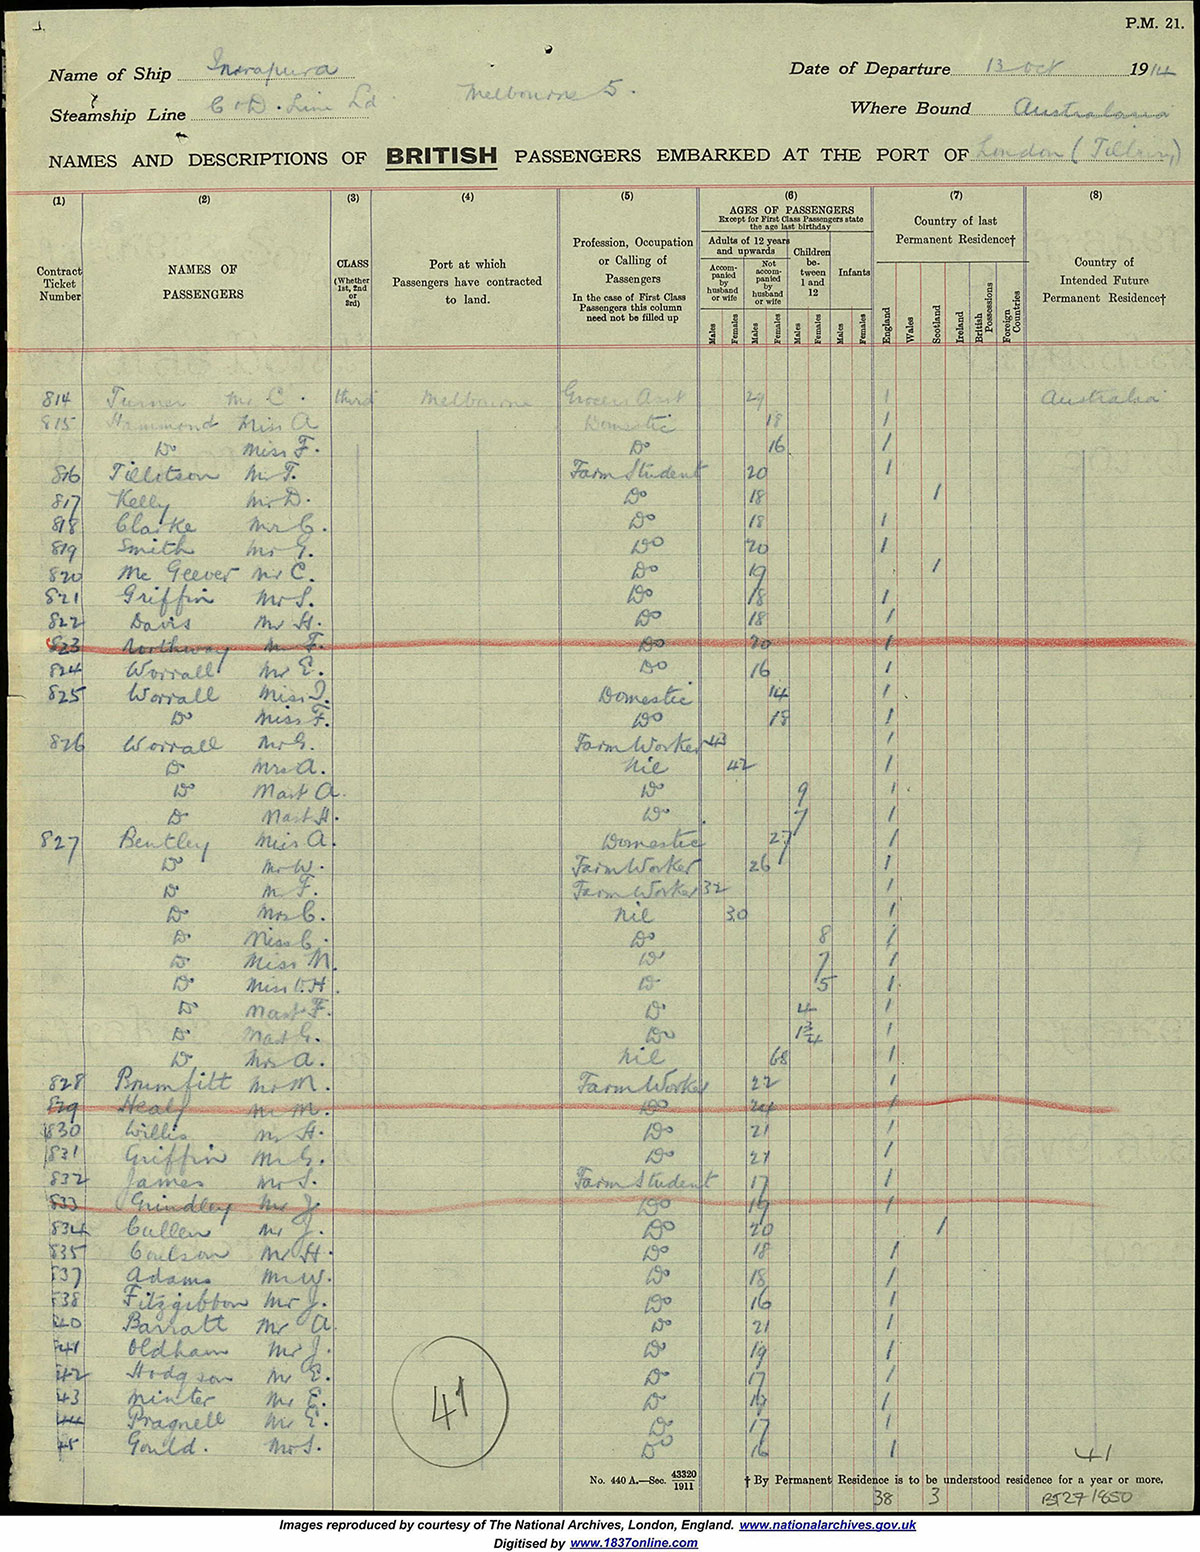 1.
P.M. 21.
Name of Ship Indrapura
Date of Departure 13 Oct 1914
Steamship Line C & D. Line Ld
Melbourne 5.
Where Bound Australasia
NAMES AND DESCRIPTIONS OF BRITISH PASSENGERS EMBARKED AT THE PORT OF London (Tilbury)
(1) (2) (3) (4) (5) (6) (7) (8)
Contract Ticket Number
NAMES OF PASSENGERS
CLASS (Whether 1st, 2nd or 3rd)
Port at which Passengers have contracted to land.
Profession, Occupation or Calling of Passengers
In the case of First Class Passengers this column need not be filled up
AGES OF PASSENGERS
Except for First Class Passengers state the age last birthday
Adults of 12 years and upwards
Accompanied by husband or wife
Not accompanied by husband or wife
Children between 1 and 12
Infants
Males Females Males Females Males Females Males Females
Country of last Permanent Residence†
England Wales Scotland Ireland British Possessions Foreign Countries
Country of Intended Future Permanent Residence†
814 Turner Mr C. third Melbourne Grocers Asst 29 1 Australia
815 Hammond Miss A Domestic 18 1
Do Miss F. Do 16 1
816 Tillotson Mr T. Farm Student 20 1
817 Kelly Mr D. Do 18 1
818 Clarke Mr C. Do 18 1
819 Smith Mr G. Do 20 1
820 Mc Geever Mr C. Do 19 1
821 Griffin Mr S. Do 18 1
822 Davis Mr H. Do 18 1
823 Northway Mr F. Do 20 1
824 Worrall Mr E. Do 16 1
825 Worrall Miss I. Domestic 14 1
Do Miss F. Do 18 1
826 Worrall Mr G. Farm Worker 43 1
Do Mrs A. Nil 42 1
Do Mast A. Do 9 1
Do Mast H. Do 7 1
827 Bentley Miss A. Domestic 27 1
Do Mr W. Farm Worker 26 1
Do Mr F. Farm Worker 32 1
Do Mrs C. Nil 30 1
Do Miss C. Do 8 1
Do Miss M. Do 7 1
Do Miss H. Do 5 1
Do Mast F. Do 4 1
Do Mast G. Do 1 3/4 1
Do Mrs A. Nil 68 1
828 Brumfitt Mr M. Farm Worker 22 1
829 Healy Mr M. Do 24 1
830 Willis Mr H. Do 21 1
831 Griffin Mr G. Do 21 1
832 James Mr S. Farm Student 17 1
833 Grindley Mr J. Do 19 1
834 Cullen Mr J. Do 20 1
835 Coulson Mr H. Do 18 1
837 Adams Mr W. Do 18 1
838 Fitzgibbon Mr J. Do 16 1
40 Barratt Mr A. Do 21 1
41 Oldham Mr J. Do 19 1
42 Hodgson Mr E. Do 17 1
43 Minter Mr E. Do 19 1
44 Pragnell Mr E. Do 17 1
45 Gould. Mr S. Do 16 1
41
41
No. 440 A.—Sec. 43320/1911
† By Permanent Residence is to be understood residence for a year or more.
38 3 BT27/1850
Images reproduced by courtesy of The National Archives, London, England. www.nationalarchives.gov.uk
Digitised by www.1837online.com